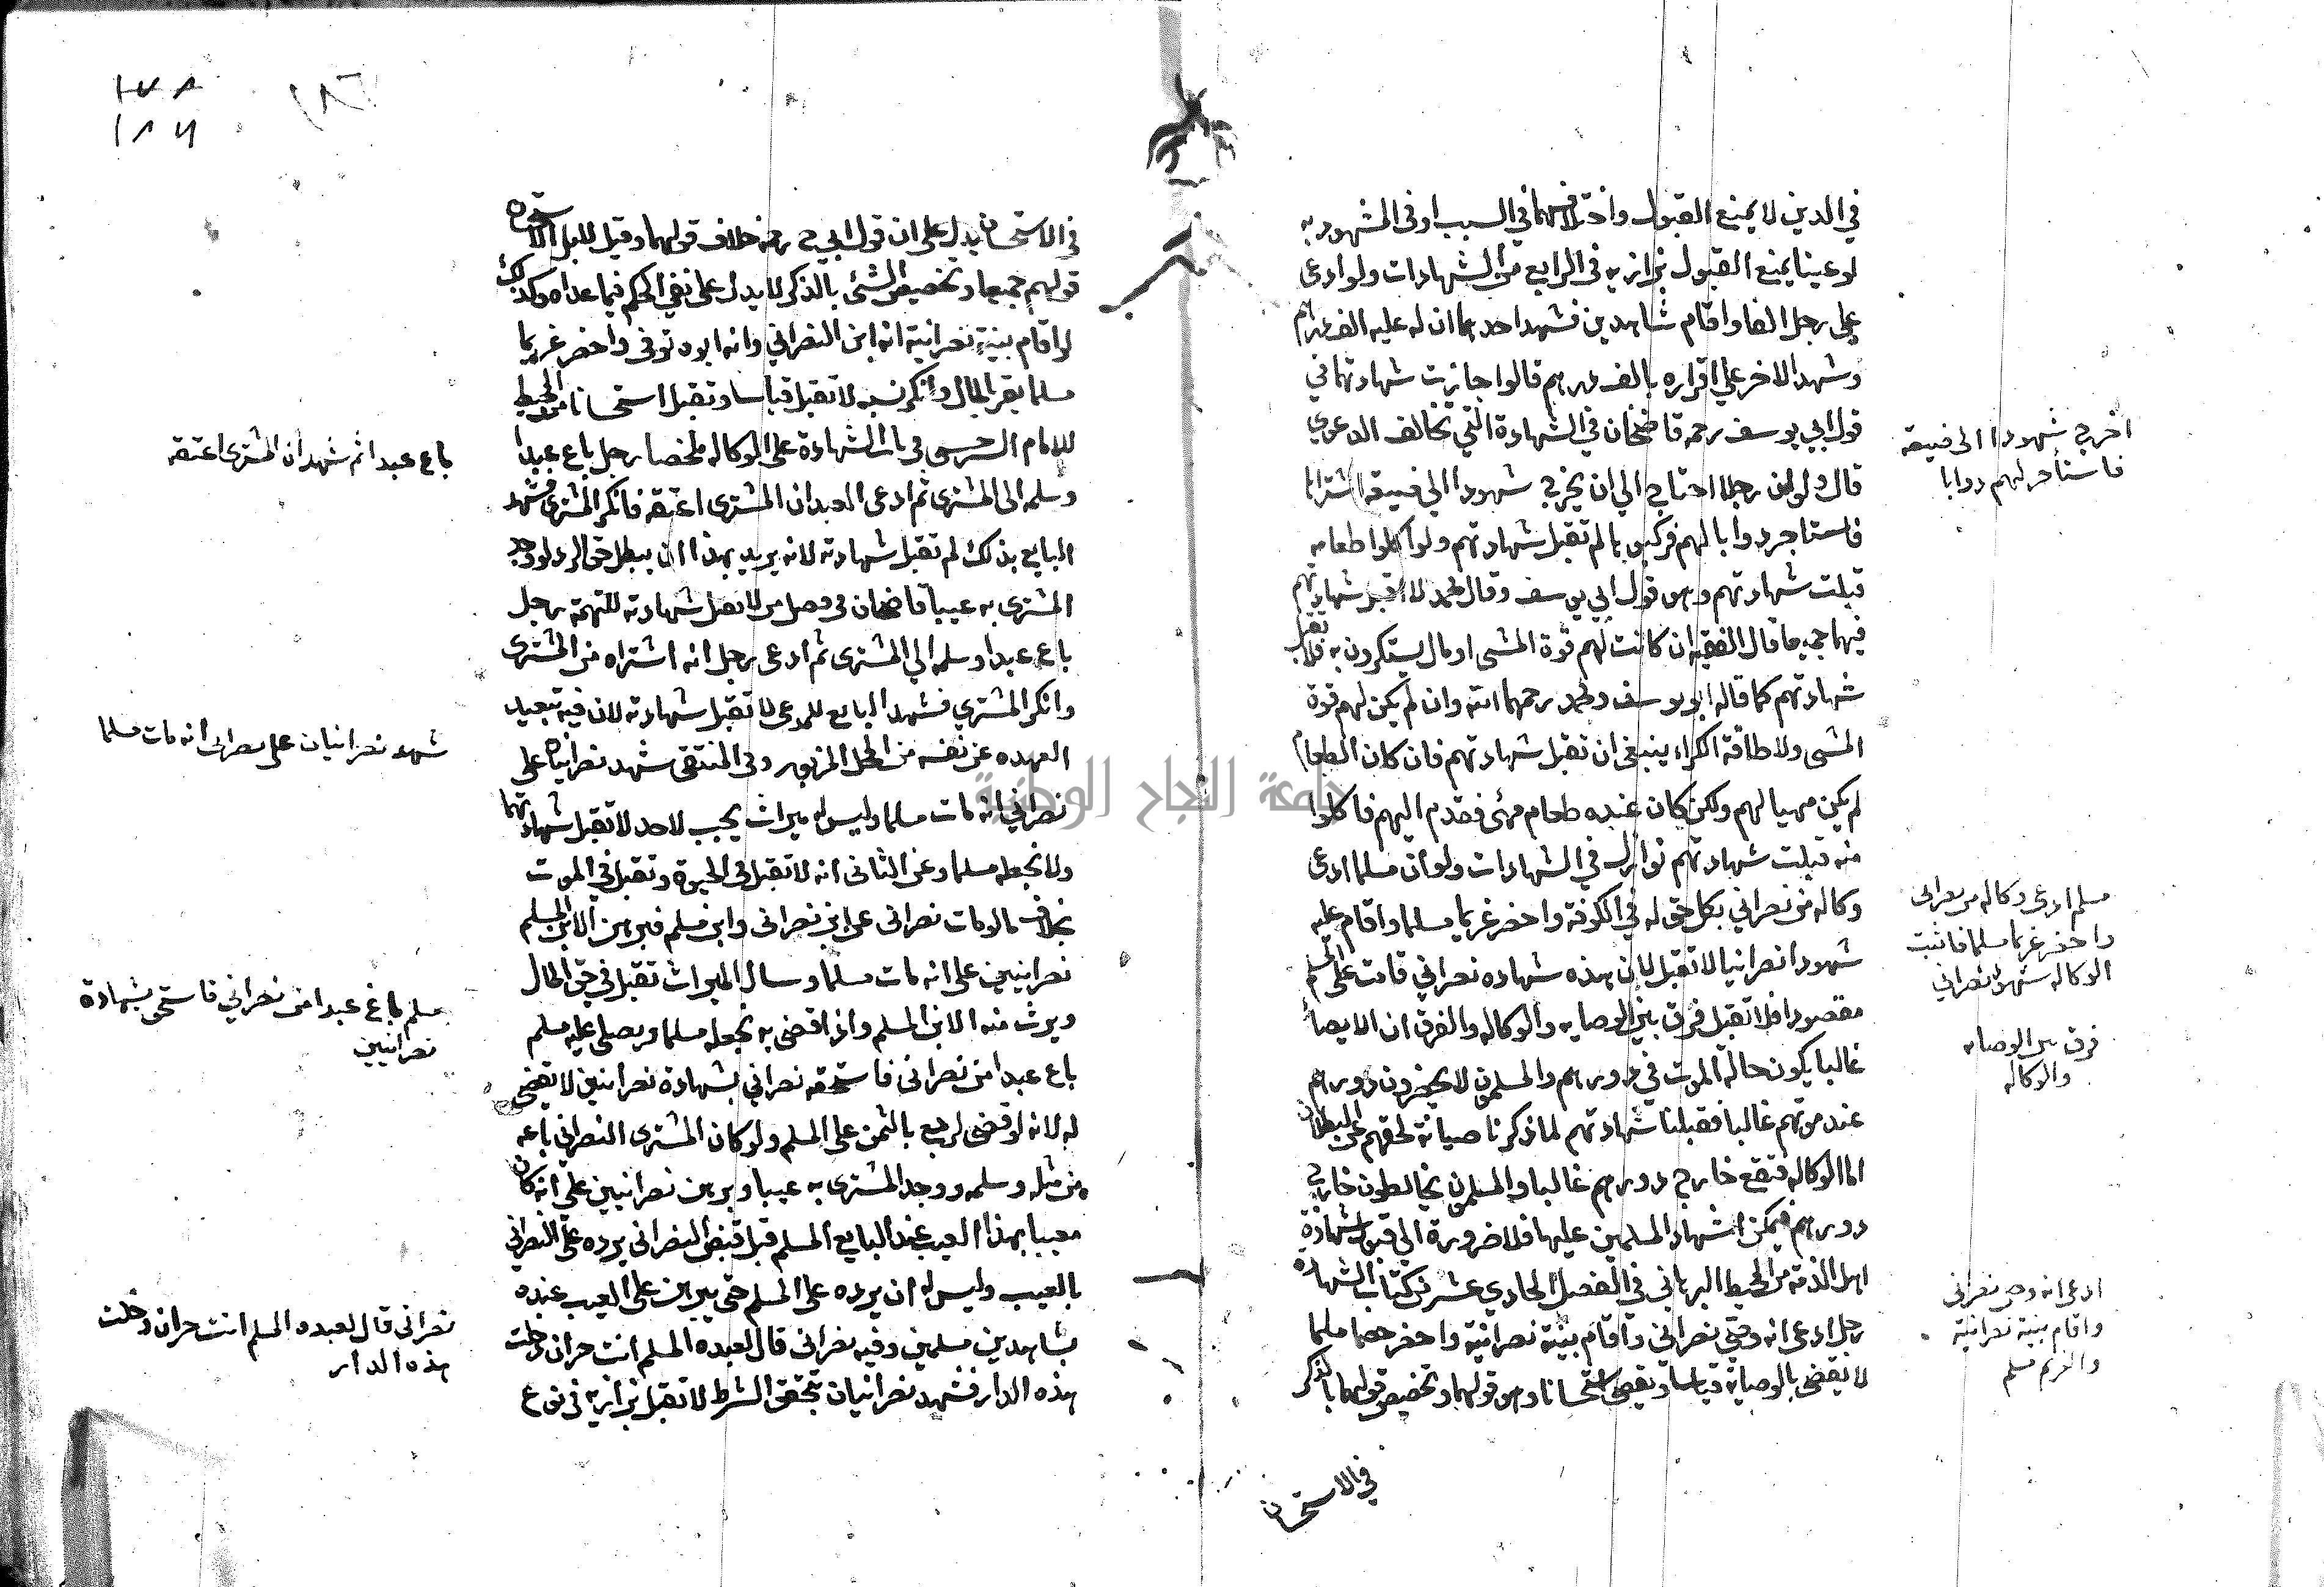 في الدين لا يمنع القبول واختلافهما في السبب او في المشهود به
لو عينا يمنع القبول بزازيه في الرابع من الشهادات ولو ادعى
على رجل الفا واقام شاهدين فشهد احدهما ان له عليه الف درهم
وشهد الاخر على اقراره بالف درهم قالوا جازت شهادتهما في
قول ابي يوسف رحمه قاضيخان في الشهادة التي تخالف الدعوي
قال ولو ان رجلا احتاج الي ان يخرج شهودا الي ضيعة اشتراها
فاستاجر دوابا لهم فركبوها لم تقبل شهادتهم ولو اكلوا طعامه
قبلت شهادتهم وهو قول ابي يوسف وقال محمد لا تقبل شهادتهم
فيهما جميعا قال الفقيه ان كانت لهم قوة المشى او مال يستكرون به فلا تقبل
شهادتهم كما قاله ابو يوسف ومحمد رحمهما الله وان لم يكن لهم قوة
المشى ولا طاقة الكراء ينبغى ان تقبل شهادتهم فان كان الطعام
لم يكن مهيا لهم ولكن كان عنده طعام مهئ فقدم اليهم فاكلوا
منه قبلت شهادتهم نوازل في الشهادات ولو ان مسلما ادعى
وكاله من نصراني بكل حق له في الكوفة واحضر غريما مسلما واقام عليه
شهودا نصرانيا لا تقبل لان هذه شهاده نصراني قامت على المسلم
مقصودا فلا تقبل فرق بين الوصايه والوكاله والفرق ان الايصا
غالبا يكون حالة الموت في دورهم والمسلمون لا يحضرون دورهم
عند موتهم غالبا فقبلنا شهادتهم لما ذكرنا صيانة لحقهم عن البطلان
اما الوكاله فتقع خارج دورهم غالبا والمسلمون يخالطون خارج
دورهم فيمكن اشهاد المسلمين عليها فلا ضرورة الي قبول شهادة
اهل الذمة من المحيط البرهاني في الفصل الحادي عشر من كتاب الشهاده
رجل ادعى انه وصي نصراني واقام بينة نصرانية واحضر خصما مسلما
لا يقضى بالوصاية قياسا ويقضى استحسانا وهو قولهما وتخصيص قولهما بالذكر
في الاستحسان
اخرج شهودا الى ضيعه
فاستأجر لهم دوابا
مسلم ادعى وكاله من نصرانى
واحضر غريما مسلما فاثبت
الوكاله بشهود نصراني
فرق بين الوصايه
والوكاله
ادعى انه وصي نصرانى
واقام بينة نصرانية
والغريم مسلم
في الاستحسان يدل على ان قول ابي ح رحمه خلاف قولهما وقيل لا بل الاستحسان
قولهم جميعا وتخصيص الشئ بالذكر لا يدل على نفي الحكم فيما عداه وكذلك
لو اقام بينة نصرانية انه ابن النصراني وانه ابوه توفى واحضر غريما
مسلما يقر بالمال وانكر نسبه لا تقبل قياسا وتقبل استحسانا من المحيط
للامام السرخسى في باب الشهادة على الوكاله ملخصا رجل باع عبدا
وسلمه الى المشترى ثم ادعى العبد ان المشترى اعتقه فانكر المشترى فشهد
البايع بذلك لم تقبل شهادته لانه يريد بهذا ان يبطل حق الرد لو وجد
المشترى به عيبا قاضيخان فى فصل من لا تقبل شهادته للتهمة رجل
باع عبدا وسلمه الي المشترى ثم ادعى رجل انه اشتراه من المشترى
وانكر المشتري فشهد البايع للمدعى لا تقبل شهادته لان فيه تبعيد
العهده عن نفسه من المحل المزبور وفى المنتقى شهد نصرانيان على
نصراني انه مات مسلما وليس له ميراث يجب لاحد لا تقبل شهادتهما
ولا نجعله مسلما وعن الثانى انه لا تقبل فى الحيوة وتقبل في الموت
بخلاف ما لو مات نصرانى عن ابن نصرانى وابن مسلم فبرهن الابن المسلم
نصرانيين على انه مات مسلما وسال الميراث تقبل في حق المال
ويرث منه الابن المسلم واذا قضى به نجعله مسلما ويصلى عليه مسلم
باع عبدا من نصرانى فاستحقه نصراني بشهادة نصرانيين لا يقضى
له لانه لو قضى لرجع بالثمن على المسلم ولو كان المشترى النصراني باعه
من مثله وسلمه ووجد المشترى به عيبا وبرهن نصرانيين على انه كان
معيبا بهذا العيب عند البايع المسلم قبل قبض النصرانى يرده على النصراني
بالعيب وليس له ان يرده على المسلم حتى يبرهن على العيب عنده
بشاهدين مسلمين وفيه نصرانى قال لعبده المسلم انت حر ان دخلت
هذه الدار فشهد نصرانيان بتحقق الشرط لا تقبل بزازيه فى نوع
باع عبدا ثم شهد ان المشترى اعتقه
شهد نصرانيان على نصرانى انه مات مسلما
مسلم باع عبدا من نصراني فاستحق بشهادة
نصرانيين
نصرانى قال لعبده المسلم انت حر ان دخلت
هذه الدار
١٧٨
١٨٦
١٨٦
جامعة النجاح الوطنية